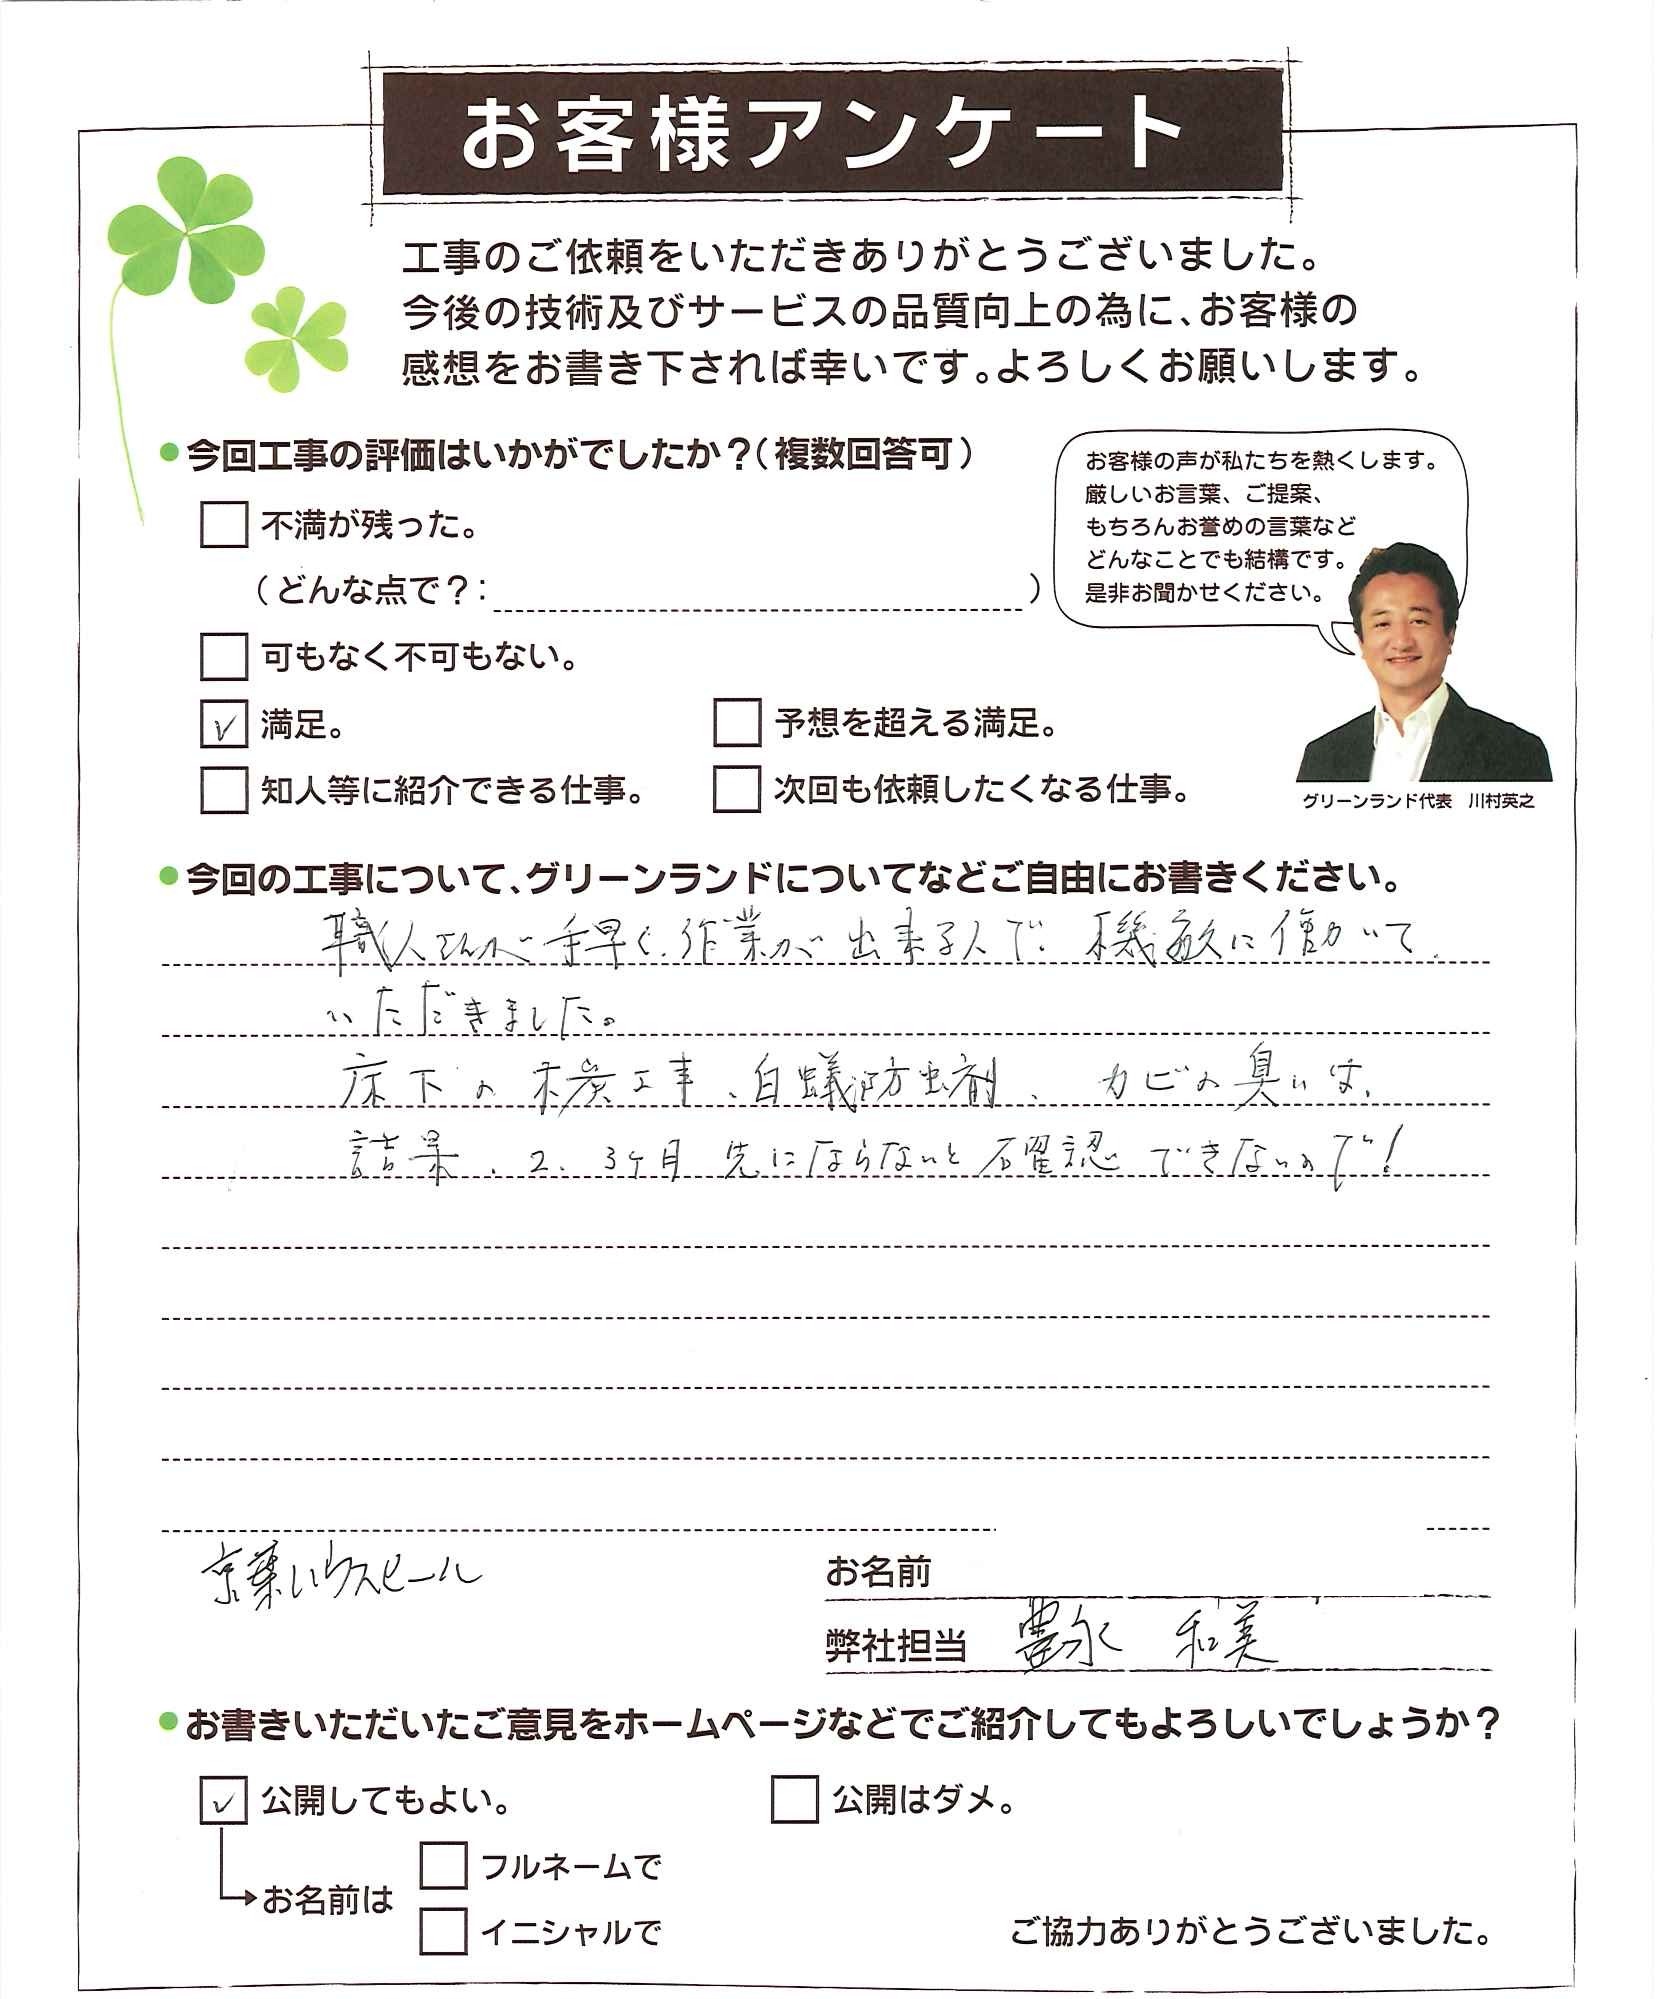 お客様アンケート
工事のご依頼をいただきありがとうございました。
今後の技術及びサービスの品質向上の為に、お客様の
感想をお書き下されば幸いです。よろしくお願いします。
●今回工事の評価はいかがでしたか？（複数回答可）
お客様の声が私たちを熱くします。
厳しいお言葉、ご提案、
もちろんお誉めの言葉など
どんなことでも結構です。
是非お聞かせください。
不満が残った。
（どんな点で？：　　　　）
可もなく不可もない。
✓ 満足。
予想を超える満足。
知人等に紹介できる仕事。
次回も依頼したくなる仕事。
グリーンランド代表　川村英之
●今回の工事について、グリーンランドについてなどご自由にお書きください。
職人さんが手早く、作業が出来る人で、機敏に働いて
いただきました。
床下の木炭工事、白蟻防虫剤、カビの臭いは、
結果、2、3ヶ月先にならないと確認できないので！
京葉ハウスビール
お名前
弊社担当　豊永　和美
●お書きいただいたご意見をホームページなどでご紹介してもよろしいでしょうか？
✓ 公開してもよい。
公開はダメ。
お名前は
フルネームで
イニシャルで
ご協力ありがとうございました。